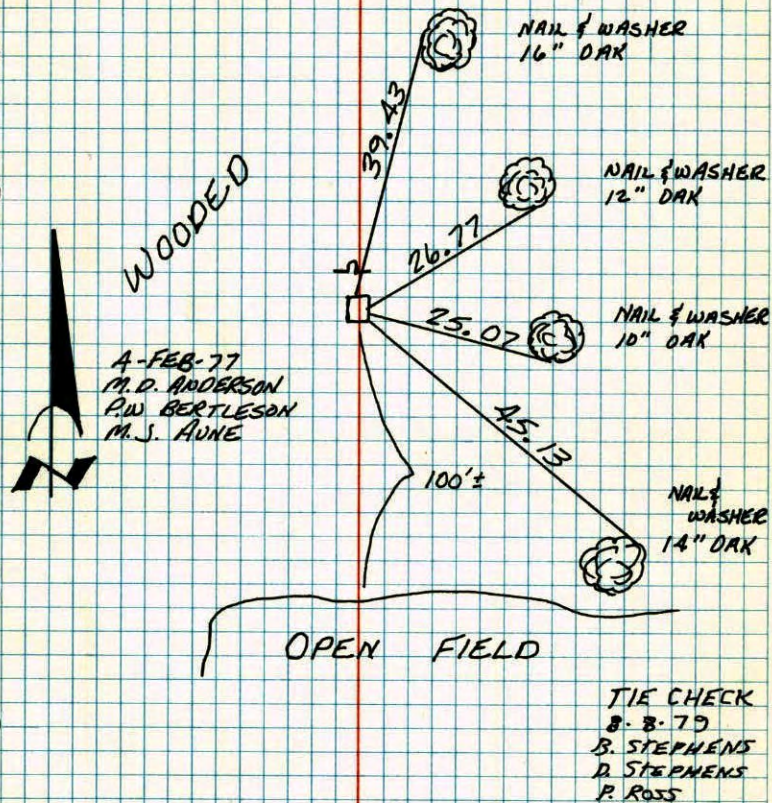 NAIL & WASHER
16" OAK
39.43
WOODED
NAIL & WASHER
12" OAK
26.77
NAIL & WASHER
10" OAK
25.07
4-FEB-77
M.D. ANDERSON
P.W BERTLESON
M.J. AUNE
45.13
100'±
NAIL &
WASHER
14" OAK
N
OPEN FIELD
TIE CHECK
8-8-79
B. STEPHENS
D. STEPHENS
P. ROSS